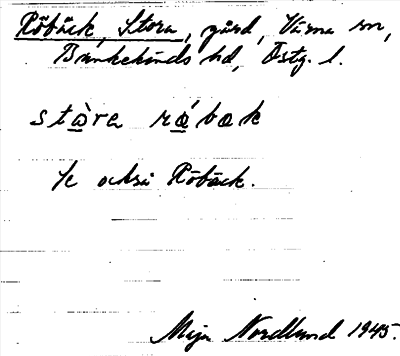 Röbäck, Stora, gård, Värna sn,
Bankekinds hd, Östg. l.
stòra rǿbæk
Se också Röbäck.
Maja Nordlund 1945.